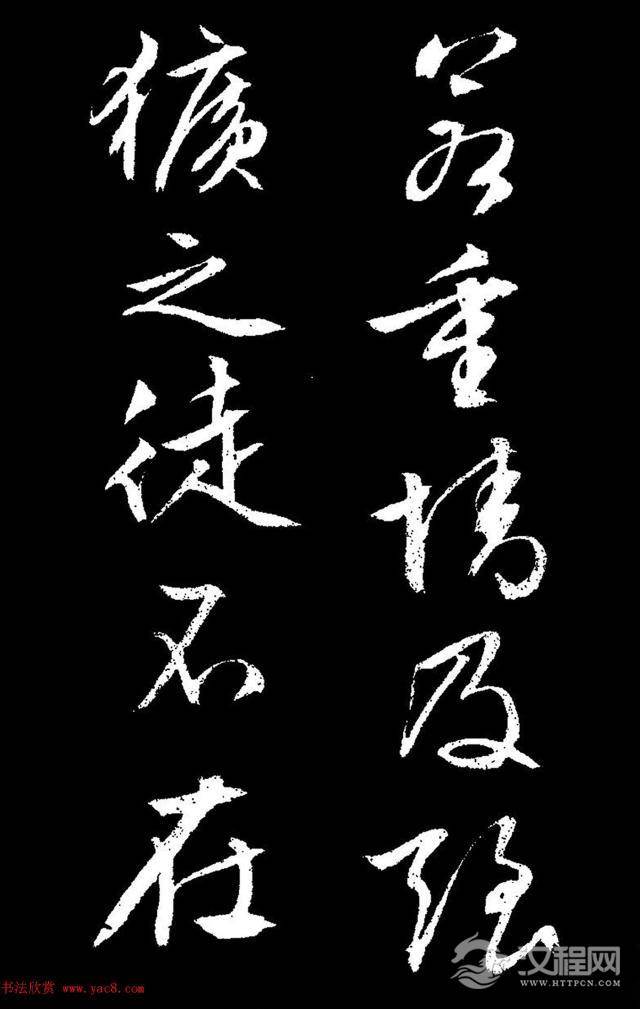 若重情及强
獷之徒不在
书法欣赏 www.yac8.com
汉程网
WWW.HTTPCN.COM